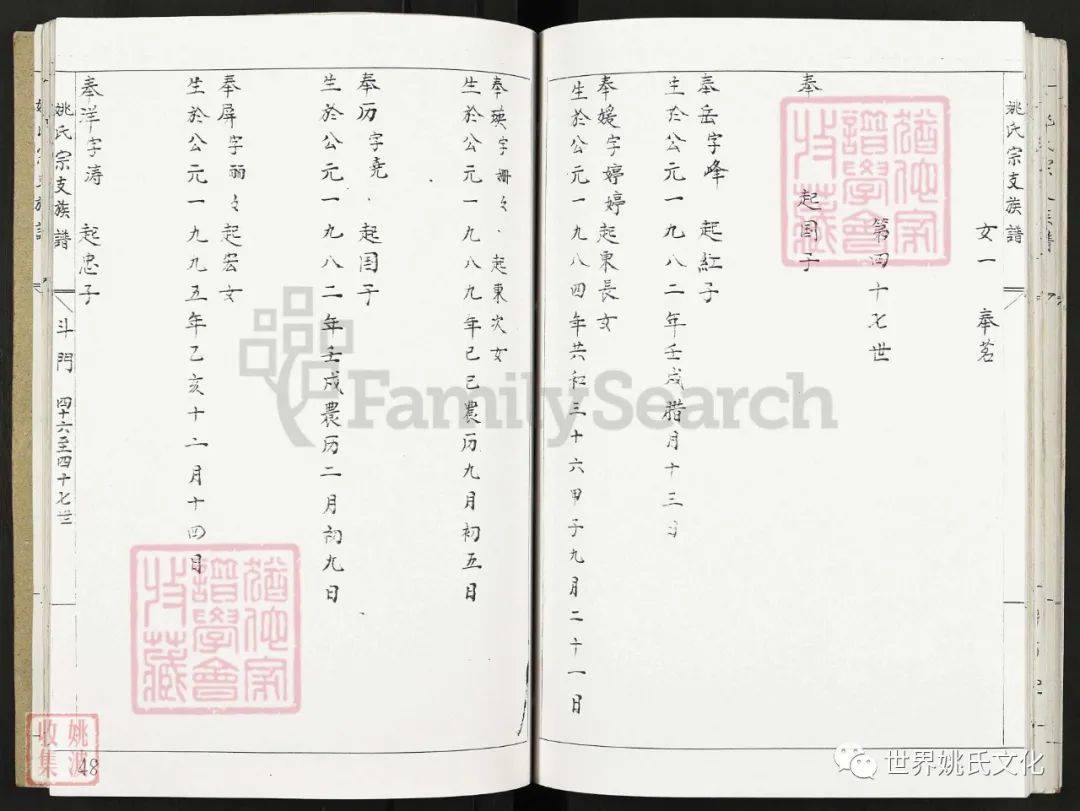 姚氏宗支族譜
女一 奉茗
第四十七世
奉 起国子
奉岳字峰 起紅子
生於公元一九八二年壬戌腊月十三日
奉媛字婷婷起東長女
生於公元一九八四年共和三十六甲子九月二十一日
奉瑛字珊々、起東次女
生於公元一九八九年己巳農历九月初五日
奉历字堯、起国子
生於公元一九八二年壬戌農历二月初九日
奉屏字丽々起宏女
生於公元一九九五年乙亥十二月十四日
奉洋字涛 起忠子
姚氏宗支族譜
斗門 四十六至四十七世
48
猶他家譜學會收藏
猶他家譜學會收藏
姚波收集
FamilySearch
世界姚氏文化